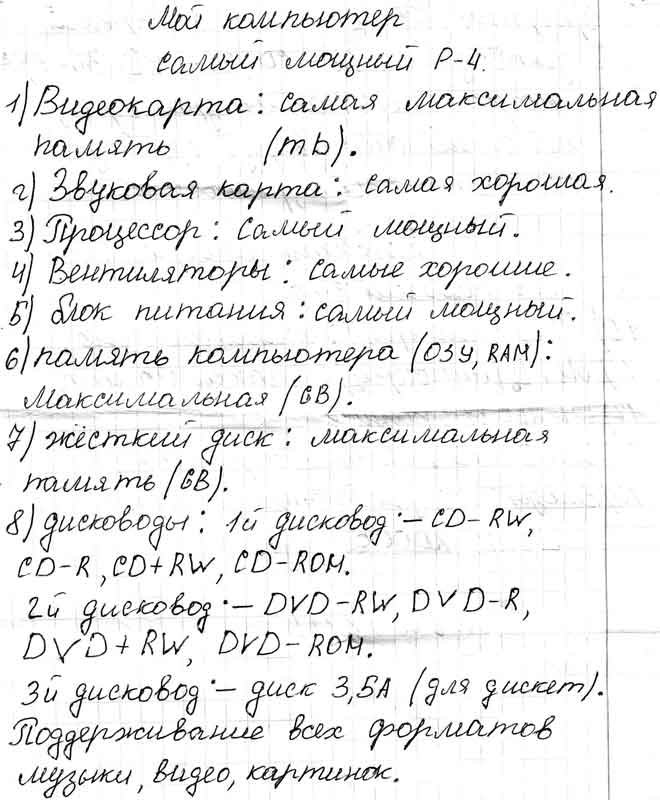 Мой компьютер
самый мощный Р-4.
1) Видеокарта: самая максимальная
память (mb).
2) Звуковая карта: самая хорошая.
3) Процессор: самый мощный.
4) Вентиляторы: самые хорошие.
5) блок питания: самый мощный.
6) память компьютера (ОЗУ, RAM):
Максимальная (GB).
7) жёсткий диск: максимальная
память (GB).
8) дисководы: 1й дисковод:- CD-RW,
CD-R, CD+RW, CD-ROM.
2й дисковод:- DVD-RW, DVD-R,
DVD+RW, DVD-ROM.
3й дисковод:- диск 3,5А (для дискет).
Поддерживание всех форматов
музыки, видео, картинок.